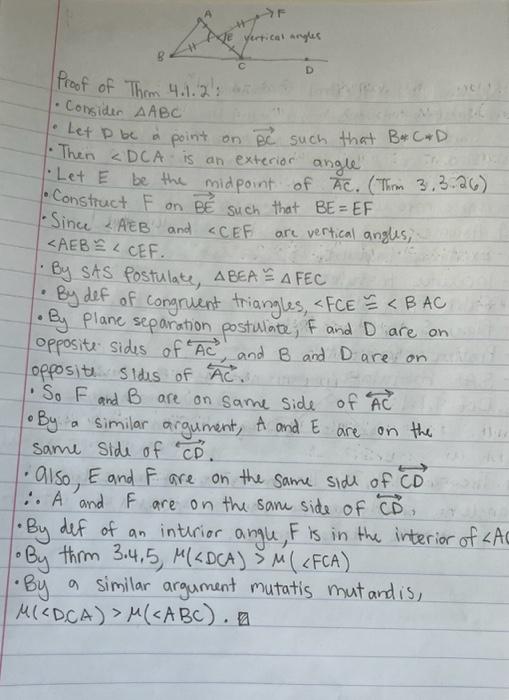 A
F
E
vertical angles
B
C
D
Proof of Thrm 4.1.2:
• Consider △ABC
• Let D be a point on →BC such that B*C*D
• Then <DCA is an exterior angle
• Let E be the midpoint of AC. (Thm 3.3.26)
• Construct F on →BE such that BE = EF
• Since <AEB and <CEF are vertical angles,
<AEB ≅ < CEF.
• By SAS Postulate, △BEA ≅ △FEC
• By def of congruent triangles, <FCE ≅ < BAC
• By plane separation postulate, F and D are on
opposite sides of ↔AC, and B and D are on
opposite sides of ↔AC.
• So F and B are on same side of ↔AC
• By a similar argument, A and E are on the
same side of ↔CD.
• Also, E and F are on the same side of ↔CD
∴ A and F are on the same side of ↔CD.
• By def of an interior angle, F is in the interior of <AC
• By thrm 3.4.5, μ(<DCA) > μ(<FCA)
• By a similar argument mutatis mutandis,
μ(<DCA) > μ(<ABC).